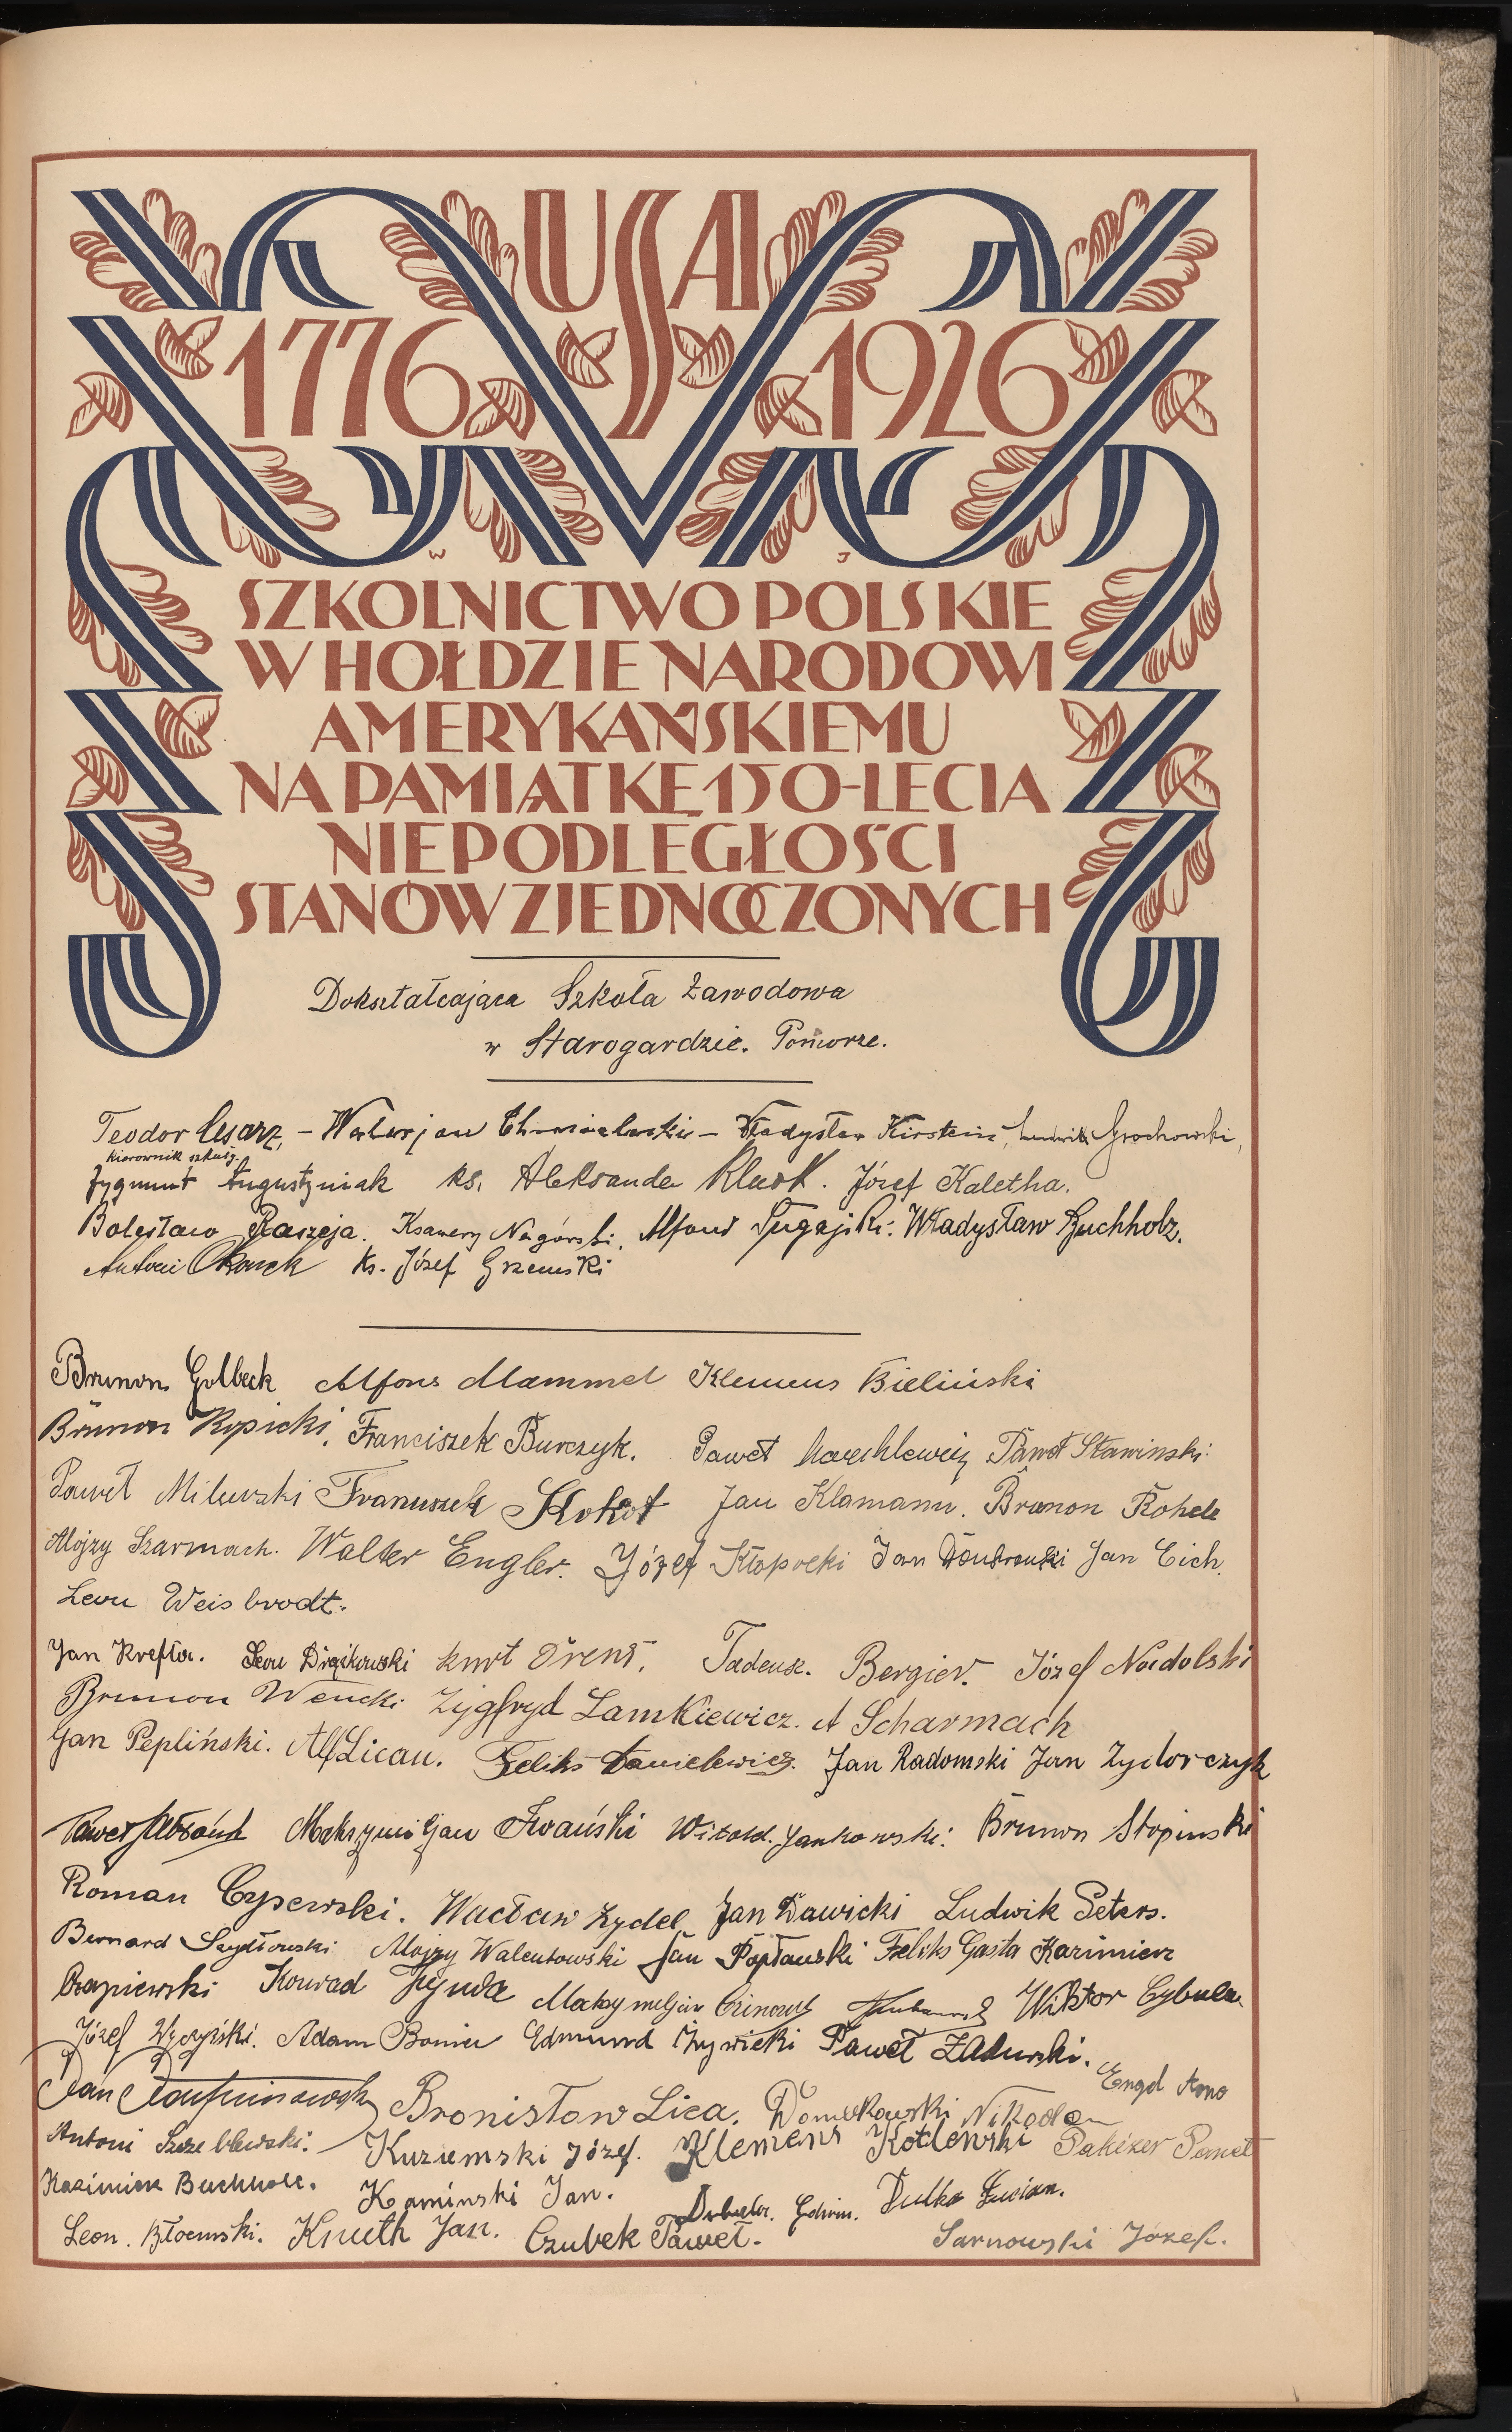 USA
1776 1926
W J
SZKOLNICTWO POLSKIE
W HOŁDZIE NARODOWI
AMERYKAŃSKIEMU
NA PAMIĄTKĘ 150-LECIA
NIEPODLEGŁOŚCI
STANÓW ZJEDNOCZONYCH
Dokształcająca Szkoła Zawodowa
w Starogardzie. Pomorze.
Teodor Cesarz, – Walerjan Chmielecki – Władysław Kirstein, Ludwik Grochowski,
kierownik szkoły.
Zygmunt Augustyniak ks. Aleksander Józef Kaletha.
Bolesław Raszeja. Ksawery Nagórski, Alfons Władysław Buchholz.
Antoni Ks. Józef Grzemski
Brunon Golbeck Alfons Mammel Klemens Bieliński
Brunon Kopicki, Franciszek Burczyk. Paweł Paweł Stawinski.
Paweł Milewski Franciszek Kokot Jan Klamann. Brunon Rohde
Alojzy Szarmach. Walter Engler. Józef Kłopocki Jan Jan Eich.
Leon Weisbrodt.
Jan Krefta. Leon Kurt Tadeusz. Bergier. Józef Nadolski
Brunon Wencki Zygfryd Lamkiewicz. A Scharmach
Jan Pepliński. Alf Licau. Feliks Danielewicz. Jan Radomski Jan Zydorczyk
Paweł Maksymiljan Iwański Witold. Jankowski. Brunon Stopinski
Roman Cysewski. Wacław Zydel Jan Dawicki Ludwik Peters.
Bernard Szydłowski Alojzy Walentowski Jan Popławski Feliks Gasta Kazimierz
Czapiewski Konrad Maksymiljan Wiktor Cybula
Józef Wyczyński. Adam Edmund Żywicki Paweł Zalewski.
Engel Arno
Jan Bronisław Lica. Domkowski Nikodem
Antoni Kuziemski Józef. Klemens Kotlewski Paweł
Kazimierz Buchholc. Kaminski Jan. Edwin. Dulka Lucian.
Leon. Błoemski. Knuth Jan. Czubek Paweł. Sarnowski Józef.